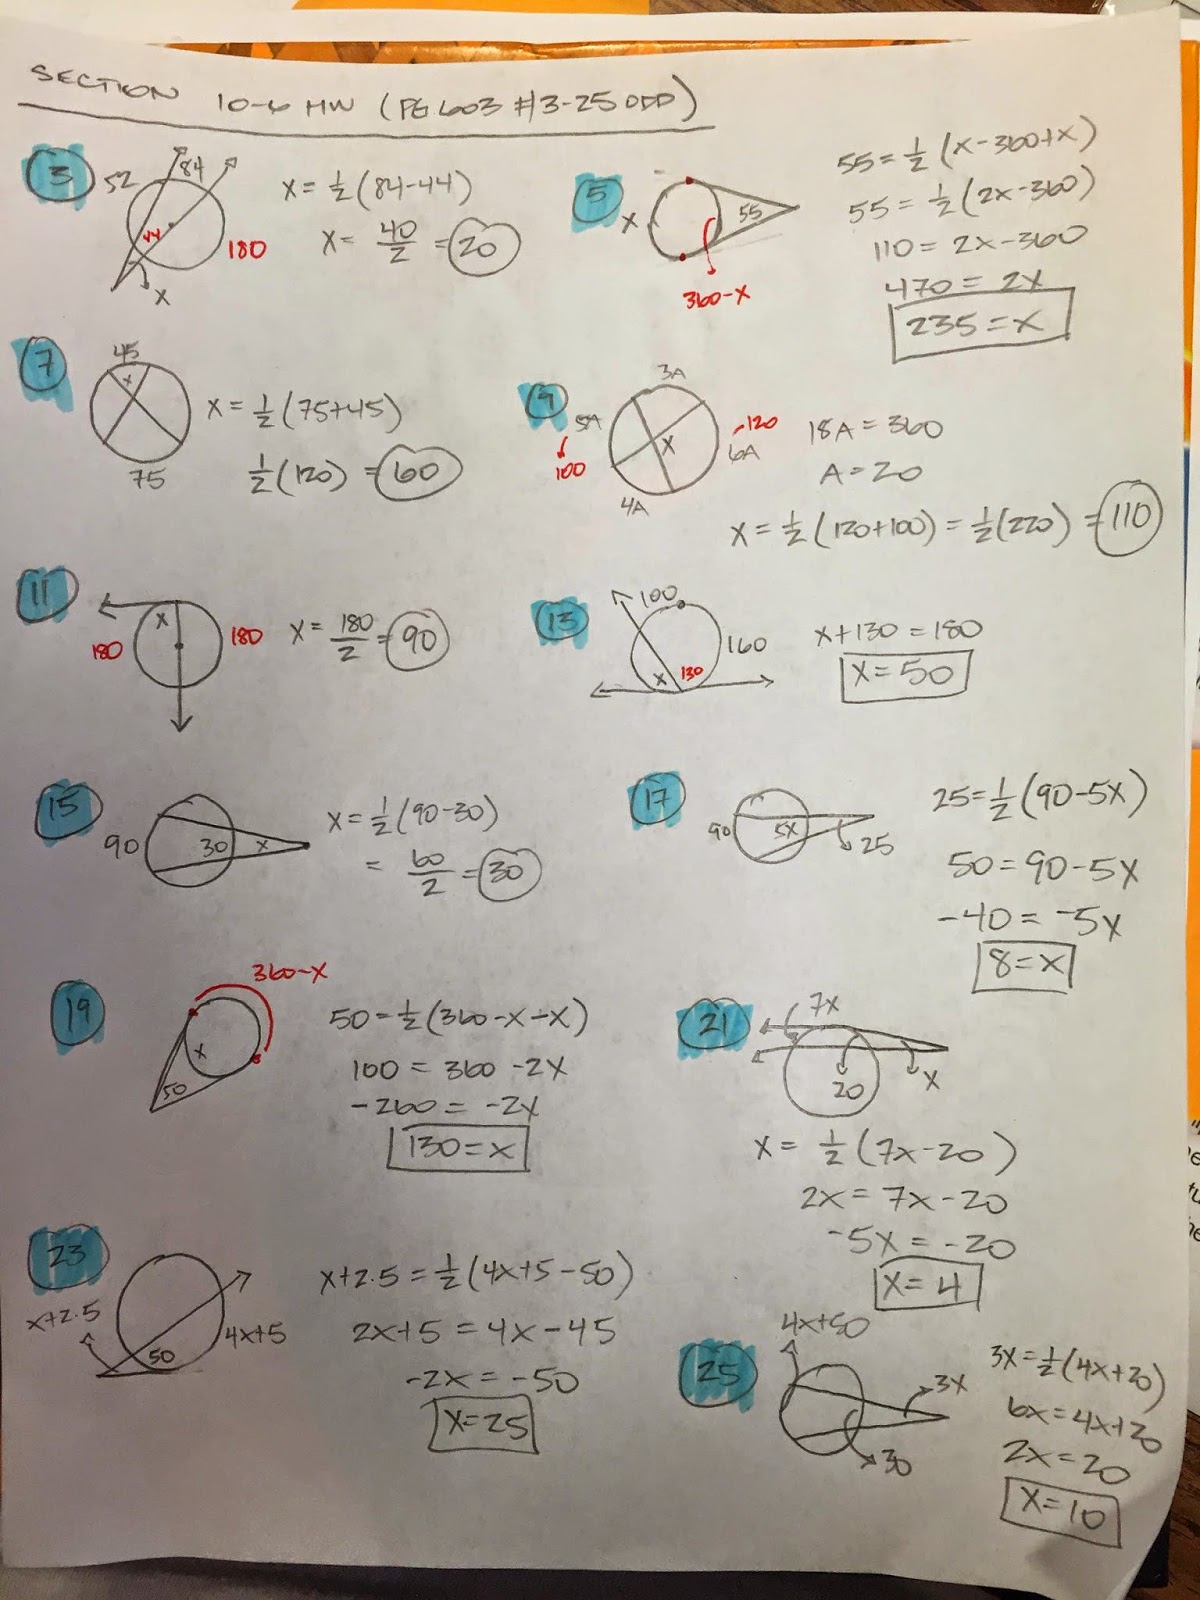 SECTION 10-6 HW (PG 603 #13-25 ODD)
3
52
84
44
180
X
X = 1/2 (84-44)
X = 40/2 = 20
5
X
55
360-X
55 = 1/2 (X-360+X)
55 = 1/2 (2X-360)
110 = 2X-360
470 = 2X
235 = X
7
45
X
75
X = 1/2 (75+45)
1/2 (120) = 60
9
3A
5A
100
X
120
6A
4A
18A = 360
A = 20
X = 1/2 (120+100) = 1/2 (220) = 110
11
X
180
180
X = 180/2 = 90
13
100
160
X
130
X+130 = 180
X = 50
15
90
30
X
X = 1/2 (90-30)
= 60/2 = 30
17
90
5X
25
25 = 1/2 (90-5X)
50 = 90-5X
-40 = -5X
8 = X
19
360-X
X
50
50 = 1/2 (360-X-X)
100 = 360-2X
-260 = -2X
130 = X
21
7X
20
X
X = 1/2 (7X-20)
2X = 7X-20
-5X = -20
X = 4
23
X+2.5
50
4X+5
X+2.5 = 1/2 (4X+5-50)
2X+5 = 4X-45
-2X = -50
X = 25
25
4X+50
3X
30
3X = 1/2 (4X+20)
6X = 4X+20
2X = 20
X = 10